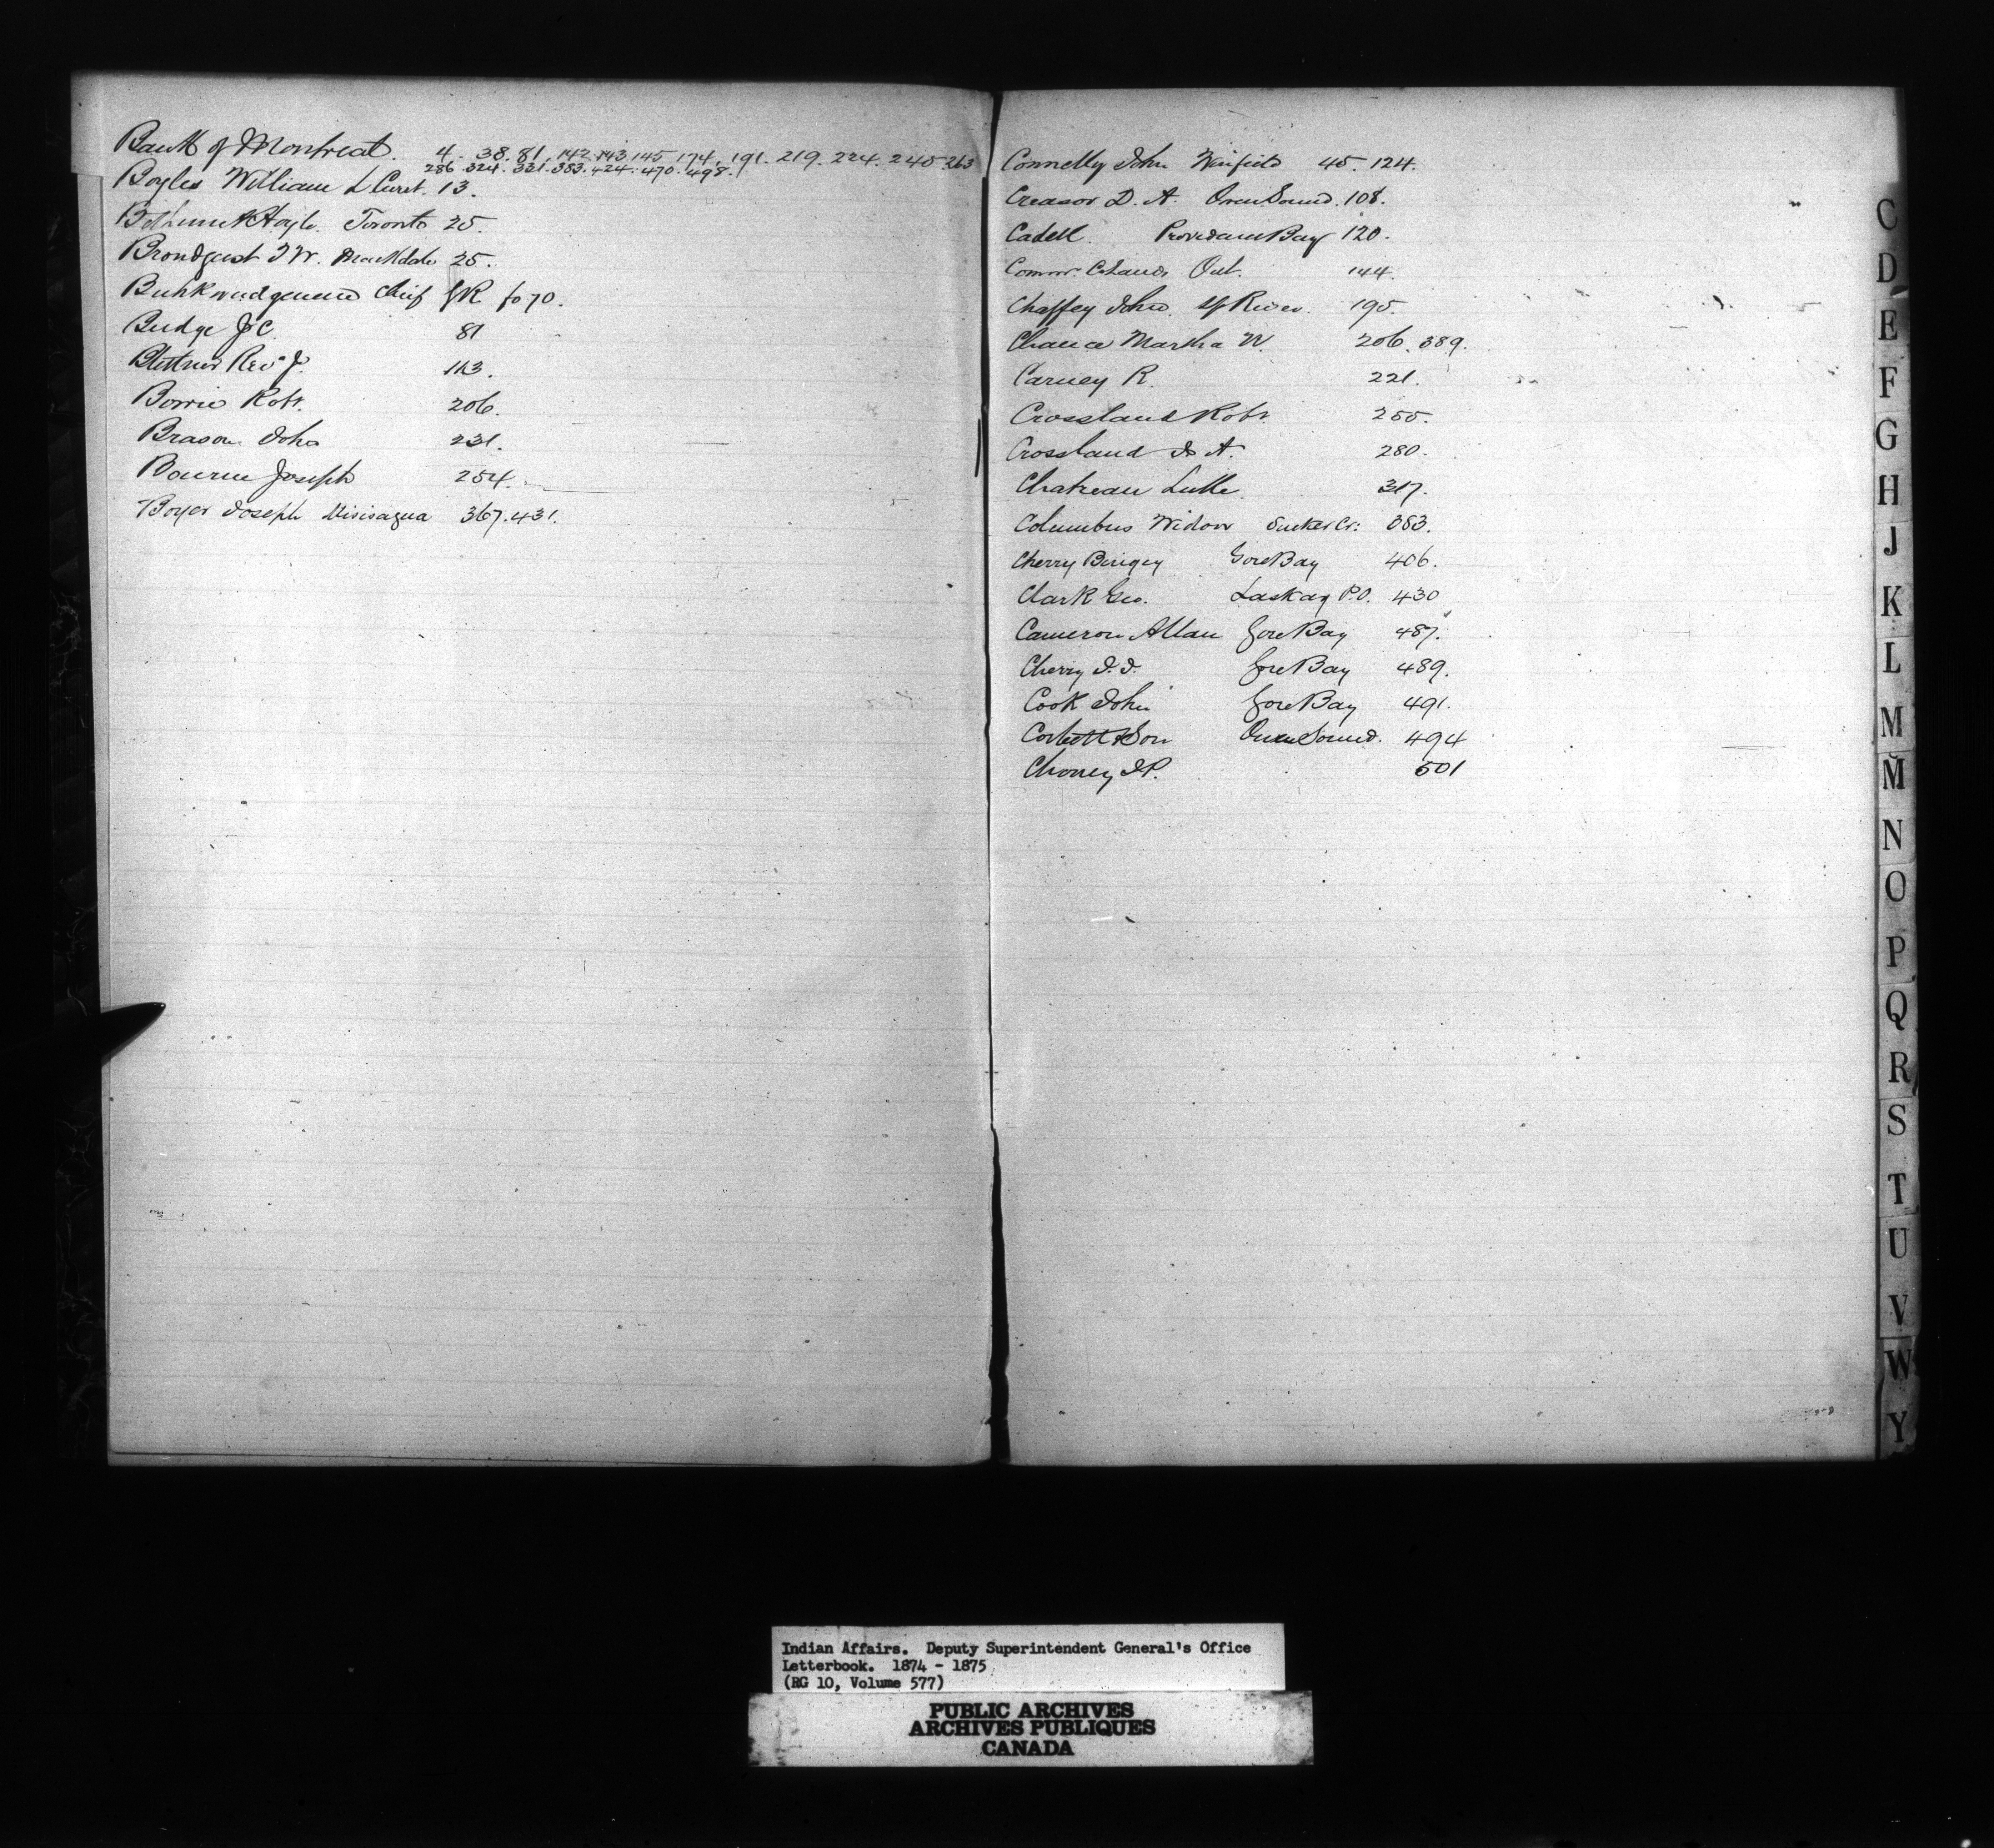 Bank of Montreal. 4. 38. 81. 142. 143. 145. 174. 191. 219. 224. 245. 263
286. 324. 331. 383. 424. 470. 498.
Boyles William L Curt. 13.
Bethune & Hoyle. Toronto 25.
Brondgeest T W. Markdale 25.
Chief GR fo 70.
Budge J C 81
Rev J. 113.
Borrie Robt. 206.
Brason John 231.
Bourne Joseph 254.
Boyer Joseph Misisagua 367. 431.
Connelly John 45. 124.
Creasor D. A. Owen Sound. 108.
Cadell. Providence Bay 120.
Commr. C Lands Ont. 144.
Chaffey John. Sp River. 195.
Chance Martha W. 206. 389.
Carney R. 221.
Crossland Robt. 255.
Crossland J A. 280.
Chatreau Lulle. 317.
Columbus Widow Sucker Cr: 383.
Cherry Gore Bay 406.
Clark Geo. Laskay P.O. 430
Cameron Allan Gore Bay 487.
Cherry J. J. Gore Bay 489.
Cook John Gore Bay 491.
Corbett & Son Owen Sound. 494
J P. 501
C
D
E
F
G
H
J
K
L
M
Mc
N
O
P
Q
R
S
T
U
V
W
Y
Indian Affairs. Deputy Superintendent General's Office
Letterbook. 1874 - 1875
(RG 10, Volume 577)
PUBLIC ARCHIVES
ARCHIVES PUBLIQUES
CANADA